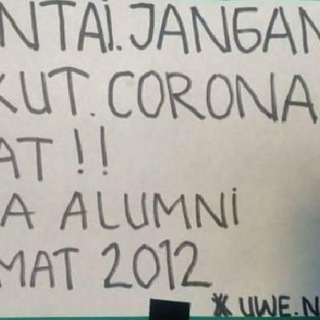 NTAi. JANGAN
KUT. CORONA
AT !!
A ALUMNi
MAT 2012
* UWE.N